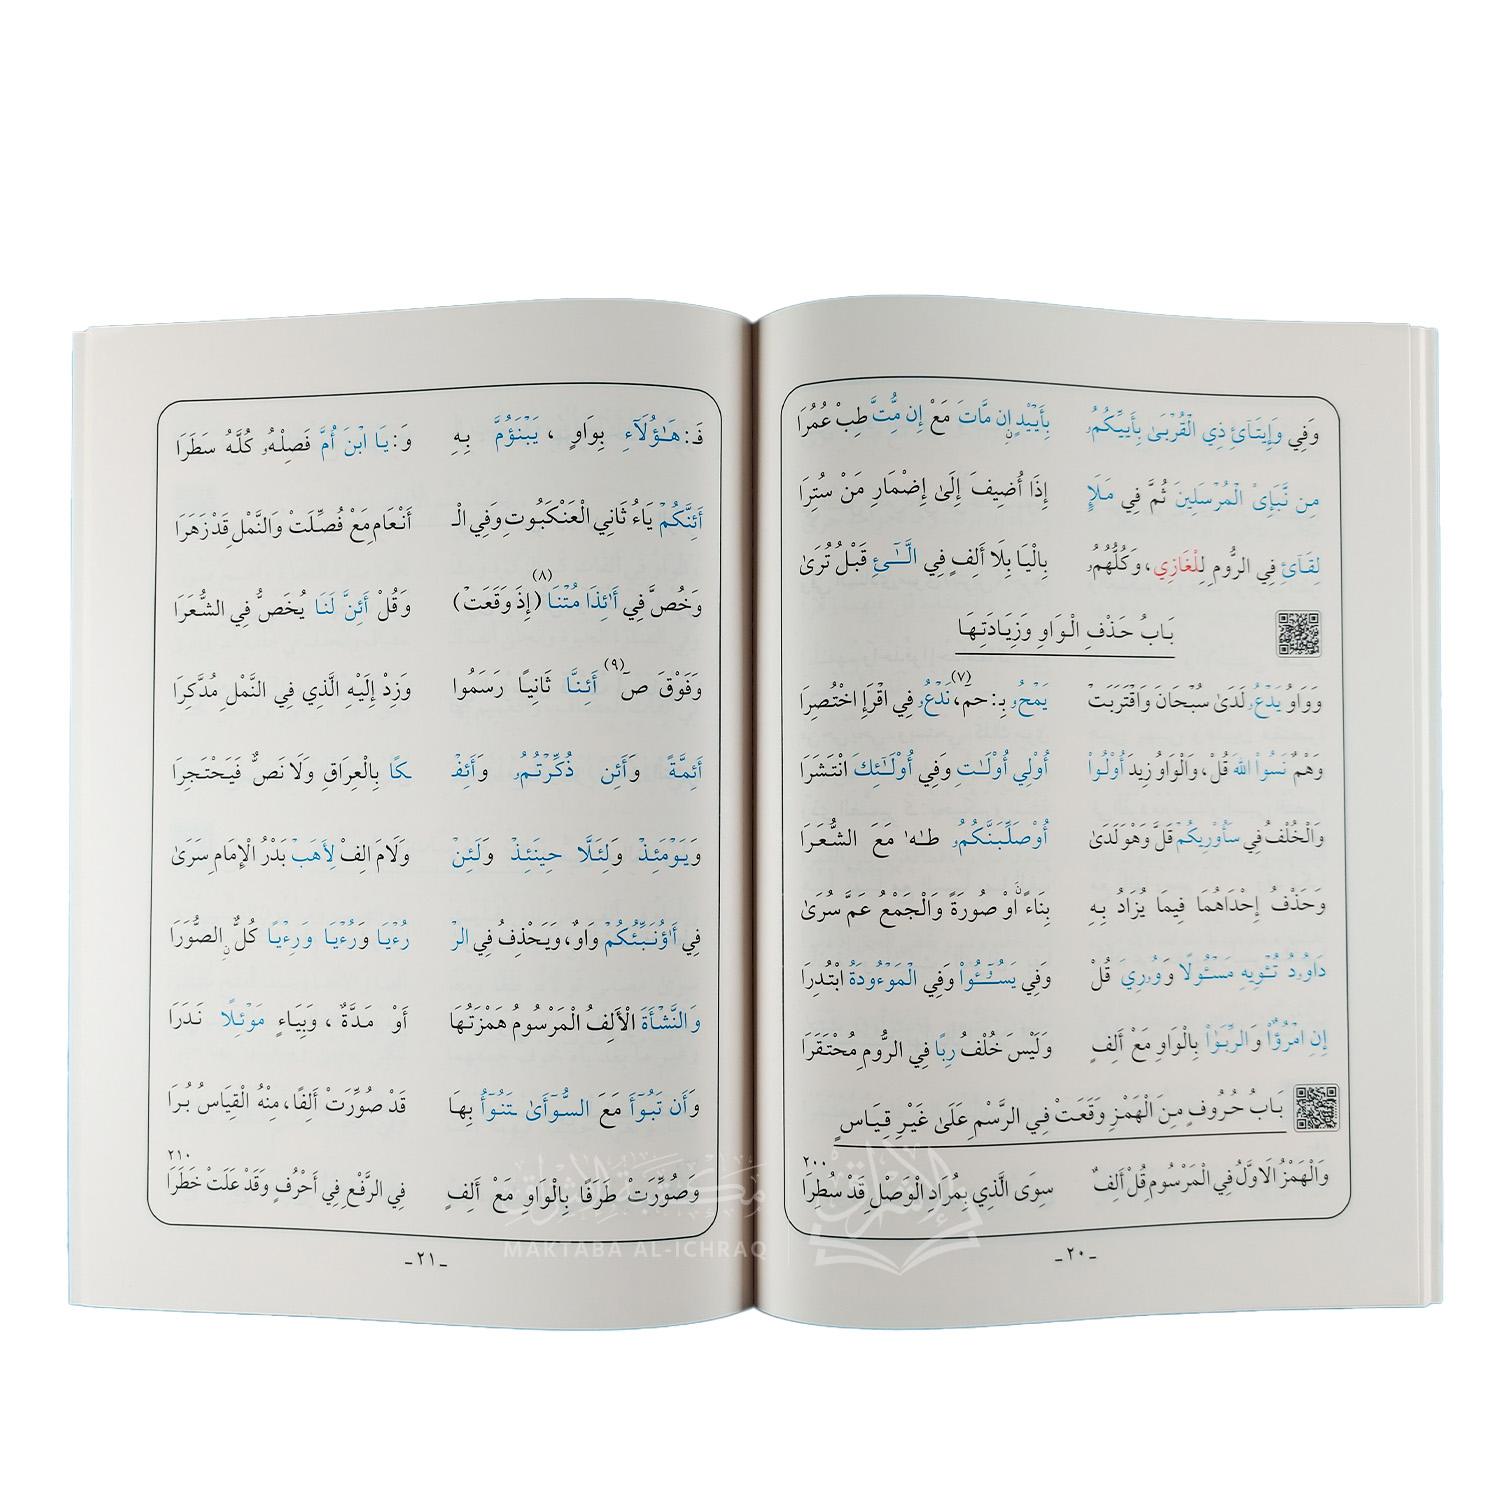 وَفِي وَإِيتَآئِ ذِي الْقُرْبَىٰ بِأَييِّكُمُۥ بِأَييْدٍ إِن مَّاتَ مَعْ إِن مِّتَّ طِبْ عُمُرَا
مِن نَّبَإِىْ الْمُرْسَلِينَ ثُمَّ فِي مَلَإٍ إِذَا أُضِيفَ إِلَىٰ إِضْمَارِ مَنْ سُتِرَا
لِقَآئِ فِي الرُّومِ لِلْغَازِي، وَكُلُّهُمُۥ بِالْيَا بِلَا أَلِفٍ فِي الَّـٰٓـئِ قَبْلُ تُرَىٰ
بَابُ حَذْفِ الْوَاوِ وَزِيَادَتِهَا
وَوَاوُ يَدْعُۥ لَدَىٰ سُبْحَانَ وَاقْتَرَبَتْ يَمْحُۥ بِـ: حمٓ، نَدْعُۥ (٧) فِي اقْرَإِ اخْتُصِرَا
وَهْمٌ نَسُواْ اللهَ قُلْ، وَالْوَاوُ زِيدَ أُوْلُواْ أُوْلِي أُوْلَـٰتِ وَفِي أُوْلَـٰٓئِكَ انْتَشَرَا
وَالْخُلْفُ فِي سَأُوْرِيكُمْ قَلَّ وَهْوَ لَدَىٰ أُوْصَلِّبَنَّكُمُۥ طـٰهٰ مَعَ الشُّعَرَا
وَحَذْفُ إِحْدَاهُمَا فِيمَا يُزَادُ بِهِ بِنَاءً اَوْ صُورَةً وَالْجَمْعُ عَمَّ سُرَىٰ
دَاوُۥدُ تُـْٔوِيهِ مَسْـُٔولًا وَوُۥرِيَ قُلْ وَفِي يَسُـٰٓـُٔواْ وَفِي الْمَوْءُودَةُ ابْتُدِرَا
إِنِ امْرُؤٌاْ وَالرِّبَوٰاْ بِالْوَاوِ مَعْ أَلِفٍ وَلَيْسَ خُلْفُ رِبًا فِي الرُّومِ مُحْتَقَرَا
بَابُ حُرُوفٍ مِنَ الْهَمْزِ وَقَعَتْ فِي الرَّسْمِ عَلَىٰ غَيْرِ قِيَاسٍ
وَالْهَمْزُ الَاوَّلُ فِي الْمَرْسُومِ قُلْ أَلِفٌ سِوَى الَّذِي بِمُرَادِ الْوَصْلِ قَدْ سُطِرَا ٢٠٠
-٢٠-
فَـ: هَـٰٓؤُلَآءِ بِوَاوٍ، يَبْنَؤُمَّ بِهِ وَ: يَا ابْنَ أُمَّ فَصِلْهُۥ كُلَّهُ سَطَرَا
أَئِنَّكُمْ يَاءُ ثَانِي الْعَنْكَبُوتِ وَفِي الْـ أَنْعَامِ مَعْ فُصِّلَتْ وَالنَّمْلِ قَدْ زَهَرَا
وَخُصَّ فِي أَئِذَا مُتْنَا (٨) (إِذَ وَقَعَتْ) وَقُلْ أَئِنَّ لَنَا يُخَصُّ فِي الشُّعَرَا
وَفَوْقَ صٓ (٩) أَئِنَّا ثَانِيًا رَسَمُوا وَزِدْ إِلَيْهِ الَّذِي فِي النَّمْلِ مُدَّكِرَا
أَئِمَّةً وَأَئِن ذُكِّرْتُمُۥ وَأَئِفْـ ـكًا بِالْعِرَاقِ وَلَا نَصٌّ فَيَحْتَجِرَا
وَيَوْمَئِذْ وَلِئَلَّا حِينَئِذْ وَلَئِنْ وَلَامَ الِفْ لِأَهَبْ بَدْرُ الْإِمَامِ سَرَىٰ
فِي أَوُنَبِّئُكُمْ وَاوٌ، وَيَحْذِفُ فِي الرْ رُءْيَا وَرُءْيَا وَرِءْيًا كُلٌّ الصُّوَرَا
وَالنَّشْأَةَ الْأَلِفُ الْمَرْسُومُ هَمْزَتُهَا أَوْ مَدَّةٌ، وَبِيَاءٍ مَوْئِلًا نَدَرَا
وَأَن تَبُوٓأَ مَعَ السُّوٓأَىٰ تَنُوٓأُ بِهَا قَدْ صُوِّرَتْ أَلِفًا، مِنْهُ الْقِيَاسُ بُرَا
وَصُوِّرَتْ طَرَفًا بِالْوَاوِ مَعْ أَلِفٍ فِي الرَّفْعِ فِي أَحْرُفٍ وَقَدْ عَلَتْ خَطَرَا ٢١٠
-٢١-
مكتبة الإشراق
MAKTABA AL-ICHRAQ